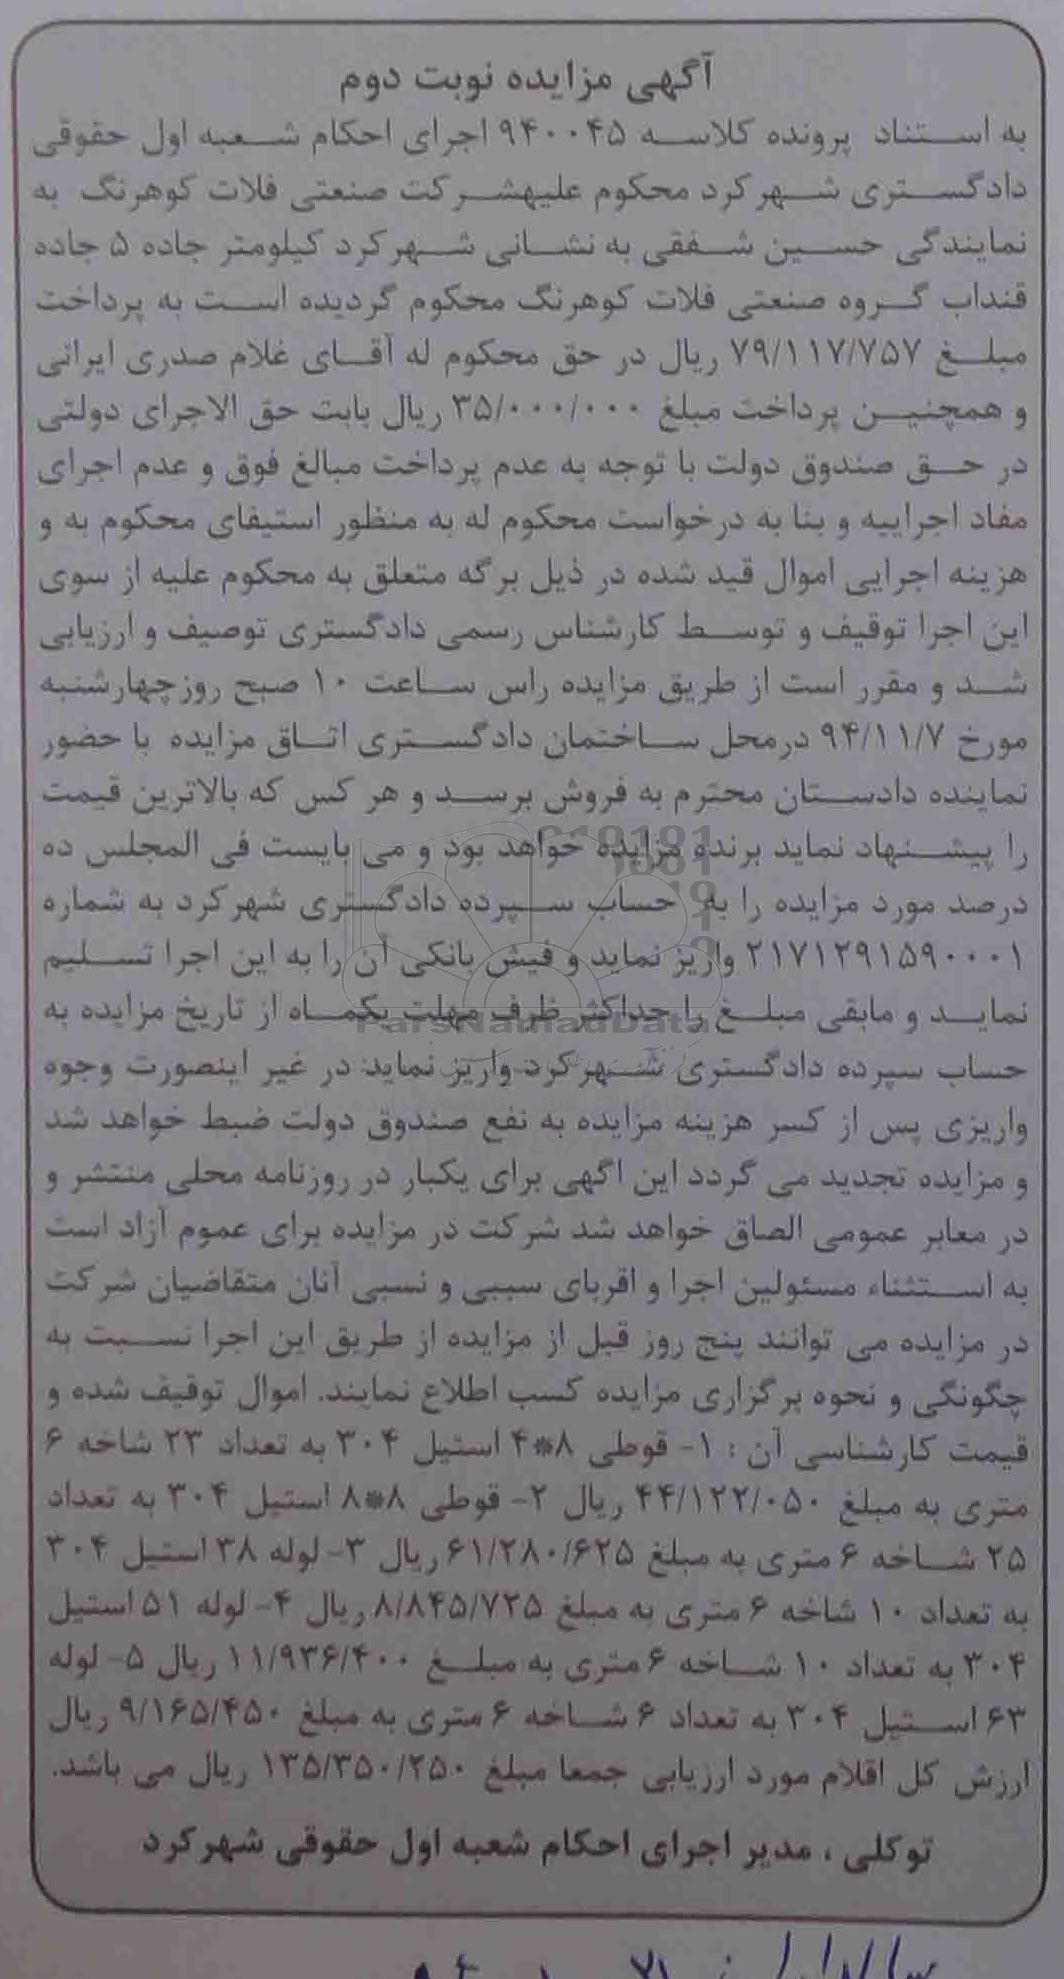 آگهی مزایده نوبت دوم
به استناد پرونده کلاسه ۹۴۰۰۴۵ اجرای احکام شعبه اول حقوقی
دادگستری شهرکرد محکوم علیهشرکت صنعتی فلات کوهرنگ به
نمایندگی حسین شفقی به نشانی شهرکرد کیلومتر جاده ۵ جاده
قنداب گروه صنعتی فلات کوهرنگ محکوم گردیده است به پرداخت
مبلغ ۷۹/۱۱۷/۷۵۷ ریال در حق محکوم له آقای غلام صدری ایرانی
و همچنین پرداخت مبلغ ۳۵/۰۰۰/۰۰۰ ریال بابت حق الاجرای دولتی
در حق صندوق دولت با توجه به عدم پرداخت مبالغ فوق و عدم اجرای
مفاد اجراییه و بنا به درخواست محکوم له به منظور استیفای محکوم به و
هزینه اجرایی اموال قید شده در ذیل برگه متعلق به محکوم علیه از سوی
این اجرا توقیف و توسط کارشناس رسمی دادگستری توصیف و ارزیابی
شد و مقرر است از طریق مزایده راس ساعت ۱۰ صبح روزچهارشنبه
مورخ ۹۴/۱۱/۷ درمحل ساختمان دادگستری اتاق مزایده با حضور
نماینده دادستان محترم به فروش برسد و هر کس که بالاترین قیمت
را پیشنهاد نماید برنده مزایده خواهد بود و می بایست فی المجلس ده
درصد مورد مزایده را به حساب سپرده دادگستری شهرکرد به شماره
۲۱۷۱۲۹۱۵۹۰۰۰۱ واریز نماید و فیش بانکی آن را به این اجرا تسلیم
نماید و مابقی مبلغ را حداکثر ظرف مهلت یکماه از تاریخ مزایده به
حساب سپرده دادگستری شهرکرد واریز نماید در غیر اینصورت وجوه
واریزی پس از کسر هزینه مزایده به نفع صندوق دولت ضبط خواهد شد
و مزایده تجدید می گردد این اگهی برای یکبار در روزنامه محلی منتشر و
در معابر عمومی الصاق خواهد شد شرکت در مزایده برای عموم آزاد است
به استثناء مسئولین اجرا و اقربای سببی و نسبی آنان متقاضیان شرکت
در مزایده می توانند پنج روز قبل از مزایده از طریق این اجرا نسبت به
چگونگی و نحوه برگزاری مزایده کسب اطلاع نمایند. اموال توقیف شده و
قیمت کارشناسی آن : ۱- قوطی ۸*۴ استیل ۳۰۴ به تعداد ۲۳ شاخه ۶
متری به مبلغ ۴۴/۱۲۲/۰۵۰ ریال ۲- قوطی ۸*۸ استیل ۳۰۴ به تعداد
۲۵ شاخه ۶ متری به مبلغ ۶۱/۲۸۰/۶۲۵ ریال ۳- لوله ۳۸ استیل ۳۰۴
به تعداد ۱۰ شاخه ۶ متری به مبلغ ۸/۸۴۵/۷۲۵ ریال ۴- لوله ۵۱ استیل
۳۰۴ به تعداد ۱۰ شاخه ۶ متری به مبلغ ۱۱/۹۳۶/۴۰۰ ریال ۵- لوله
۶۳ استیل ۳۰۴ به تعداد ۶ شاخه ۶ متری به مبلغ ۹/۱۶۵/۴۵۰ ریال
ارزش کل اقلام مورد ارزیابی جمعا مبلغ ۱۳۵/۳۵۰/۲۵۰ ریال می باشد.
توکلی ، مدیر اجرای احکام شعبه اول حقوقی شهرکرد
ParsNamadData